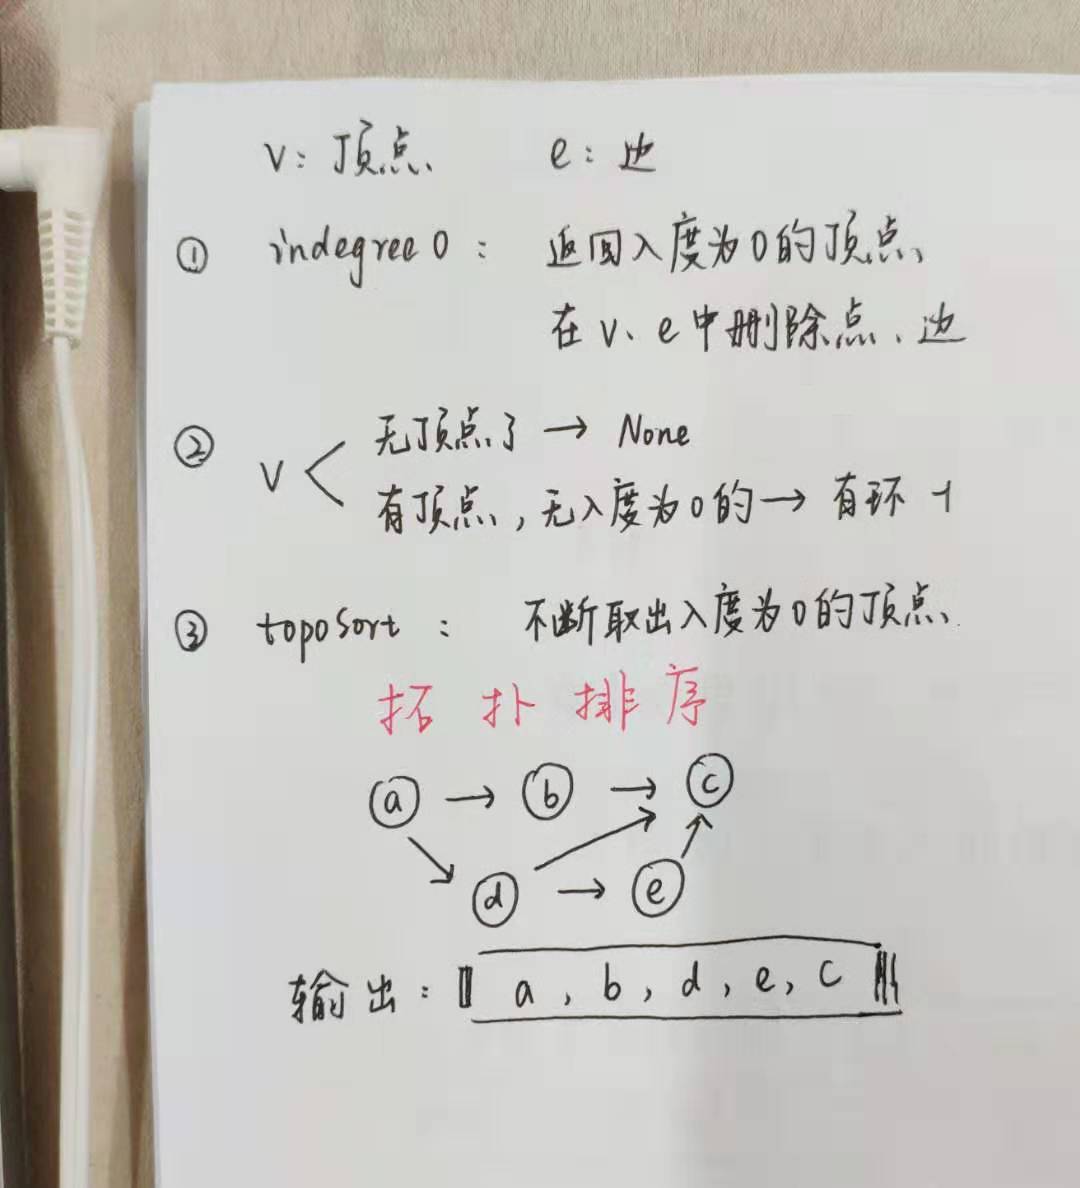 v：顶点 e：边
① indegree0：返回入度为0的顶点
在v、e中删除点、边
② v < 无顶点了 → None
有顶点，无入度为0的 → 有环 -1
③ topoSort：不断取出入度为0的顶点
拓扑排序
a → b → c
d → e
输出：[a, b, d, e, c]